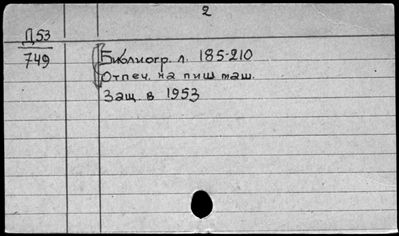 2
Д53
749
Библиогр. л. 185-210
Отпеч. на пиш. маш.
Защ. в 1953